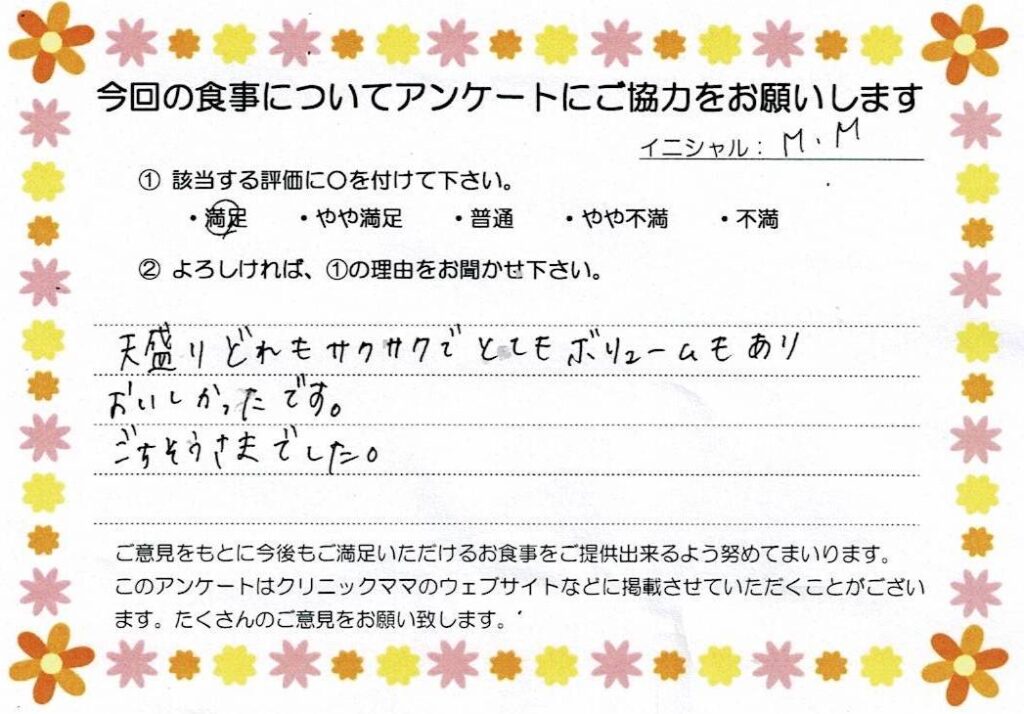 今回の食事についてアンケートにご協力をお願いします
イニシャル： M.M
① 該当する評価に〇を付けて下さい。
・満足 ・やや満足 ・普通 ・やや不満 ・不満
② よろしければ、①の理由をお聞かせ下さい。
天盛りどれもサクサクでとてもボリュームもあり
おいしかったです。
ごちそうさまでした。
ご意見をもとに今後もご満足いただけるお食事をご提供出来るよう努めてまいります。
このアンケートはクリニックママのウェブサイトなどに掲載させていただくことがござい
ます。たくさんのご意見をお願い致します。